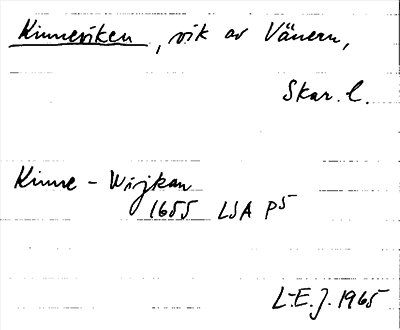 Kinneviken, vik av Vänern,
Skar. l.
Kinne-Wijkan
1655 LSA P5
L-E.J. 1965